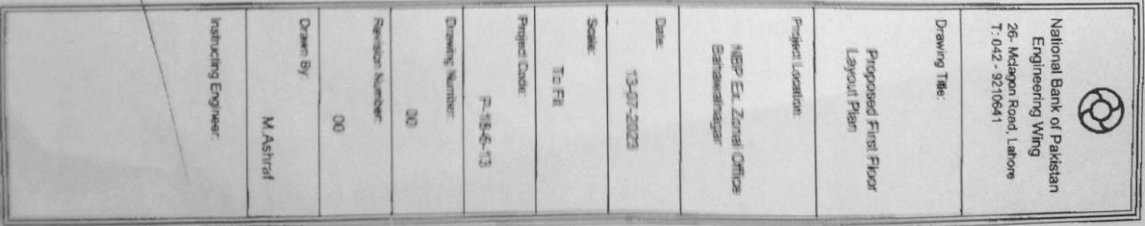 National Bank of Pakistan
Engineering Wing
26- Mclagon Road, Lahore
T: 042 - 9210641
Drawing Title:
Proposed First Floor
Layout Plan
Project Location:
NBP Ex. Zonal Office
Bahawalnagar
Date:
13-07-2023
Scale:
To Fit
Project Code:
P-15-6-13
Drawing Number:
00
Revision Number:
00
Drawn By:
M.Ashraf
Instructing Engineer: